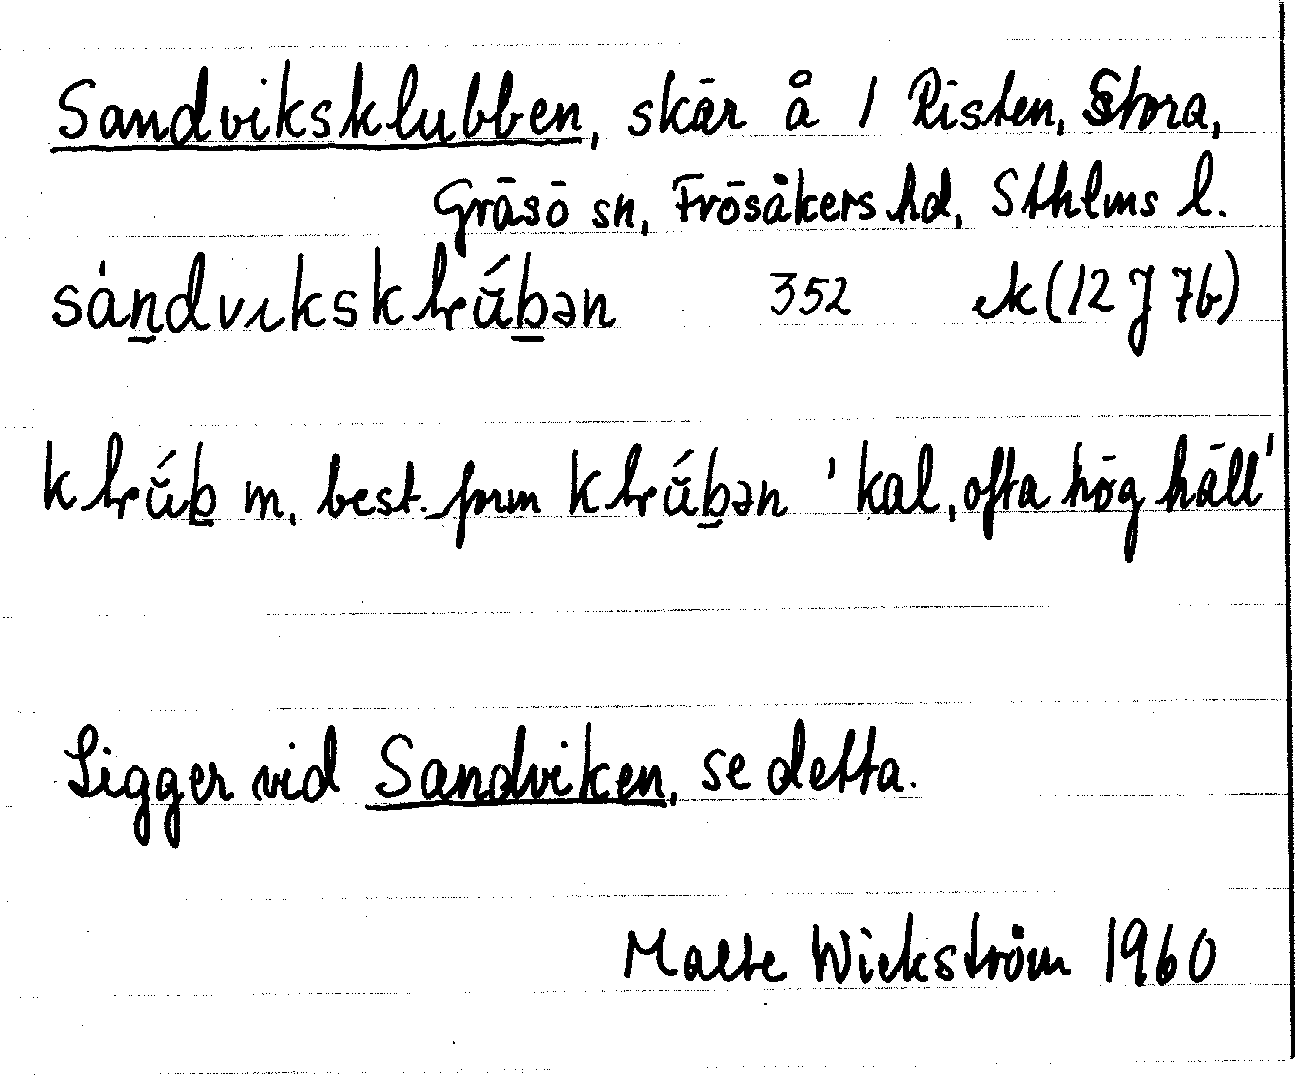 Sandviksklubben, skär å / Risten, Stora,
Gräsö sn, Frösåkers hd, Sthlms l.
sán̲dvɩksklrǘb̲ən 352 ek (12 J 7b)
klrǘb̲ m. best. form klrǘb̲ən 'kal, ofta hög häll'
Ligger vid Sandviken, se detta.
Malte Wickström 1960